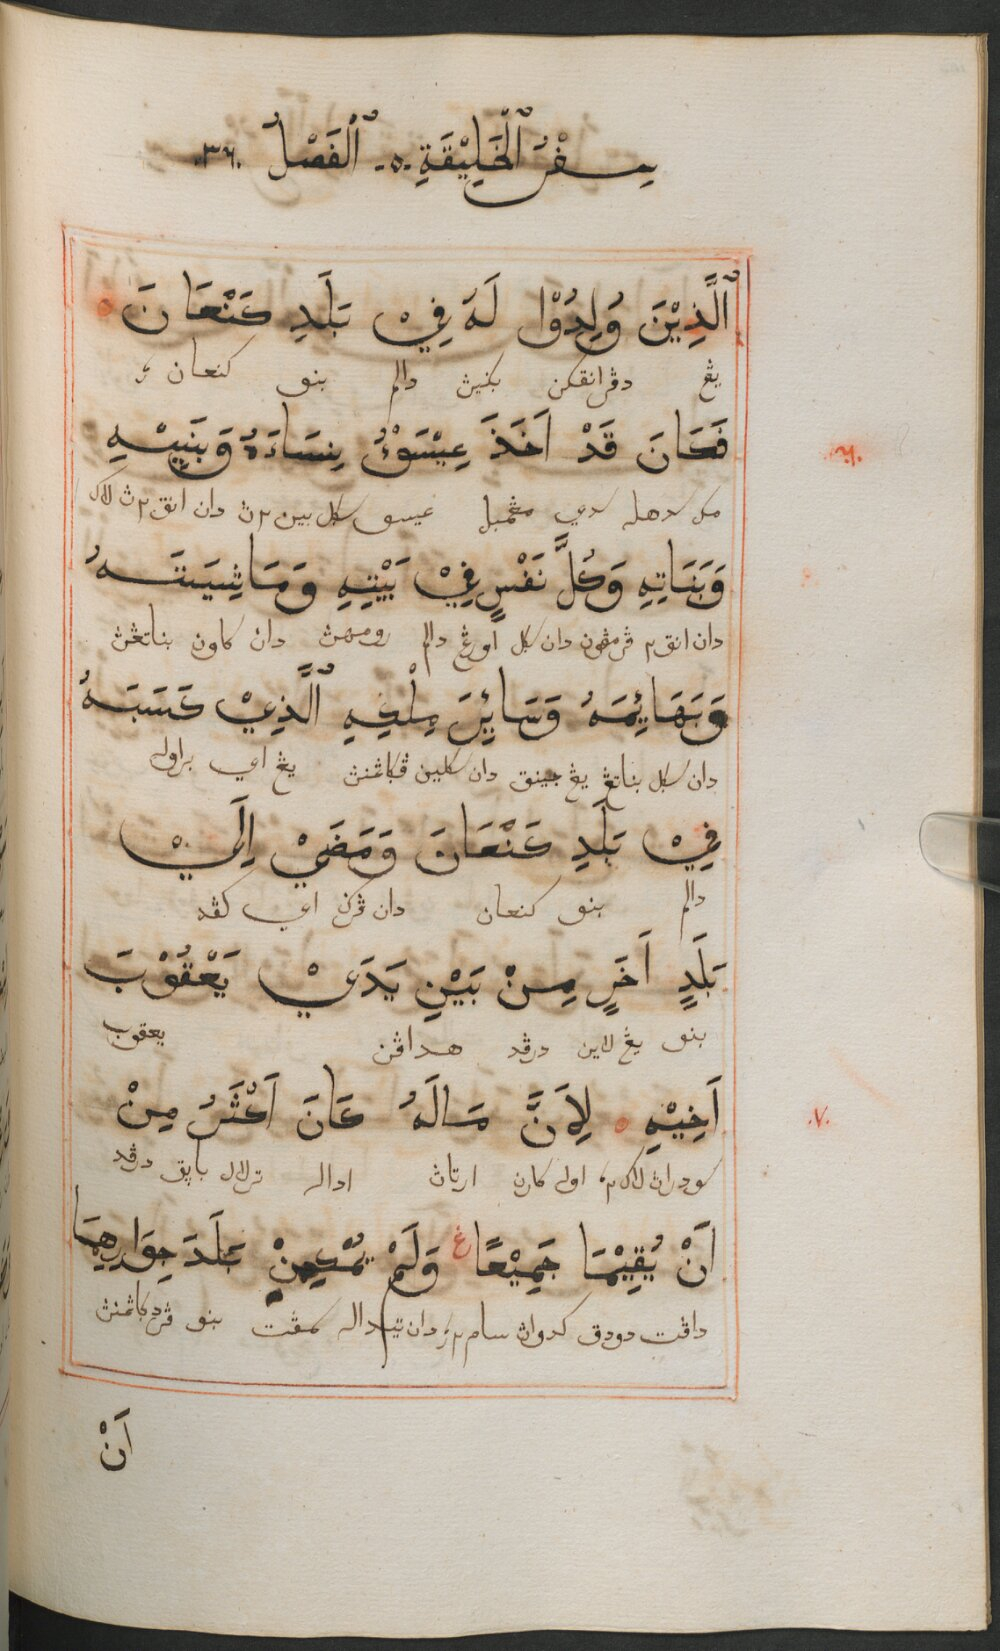 سِفْرُ ٱلْخَلِيْقَةِ ٠٥٠ ٱلْفَصْلُ ٠٣٦٠
ٱلَّذِيْنَ وُلِدُوْا لَهُ فِيْ بَلَدِ كَنْعَانَ
يڠ دفرانقكن بݢيث دالم بنو كنعان
فَكَانَ قَدْ اَخَذَ عِيْسَوْ نِسَاءَهُ وَبَنِيْهِ
٠٦٠
مك سدهله سدي مڠمبل عيسو سكل بين٢ث دان انق٢ث لاك
وَبَنَاتِهِ وَكُلَّ نَفْسٍ فِيْ بَيْتِهِ وَمَاشِيَتَهُ
دان انق٢ فرمڤون دان سكل اورڠ دالم رومهث دان كاون بناتڠث
وَبَهَائِمَهُ وَسَائِرَ مِلْكِهِ ٱلَّذِيْ كَسَبَهُ
دان سكل بناتڠ يڠ جينق دان سكلين ڤكاڠنث يڠ اي براوله
فِيْ بَلَدِ كَنْعَانَ وَمَضَيْ اِلَيْ
دالم بنو كنعان دان ڤركي اي كڤد
بَلَدٍ اَخَرٍ مِنْ بَيْنِ يَدَيْ يَعْقُوْبَ
بنو يڠ لاين درڤد هداڤن يعقوب
اَخِيْهِ لِاَنَّ مَالَهُ كَانَ اَكْثَرُ مِنْ
٠٧٠
سودراث لاك٢ اوله كارن ارتاث اداله ترلال باپق درڤد
اَنْ يُقِيْمَا جَمِيْعًا وَلَمْ يُمْكِنْ بَلَدَ جِوَارِهِمَا
داڤت دودق كدواث سام٢ دان تيداله سمڤت بنو ڤردكاڠنث
اَنْ